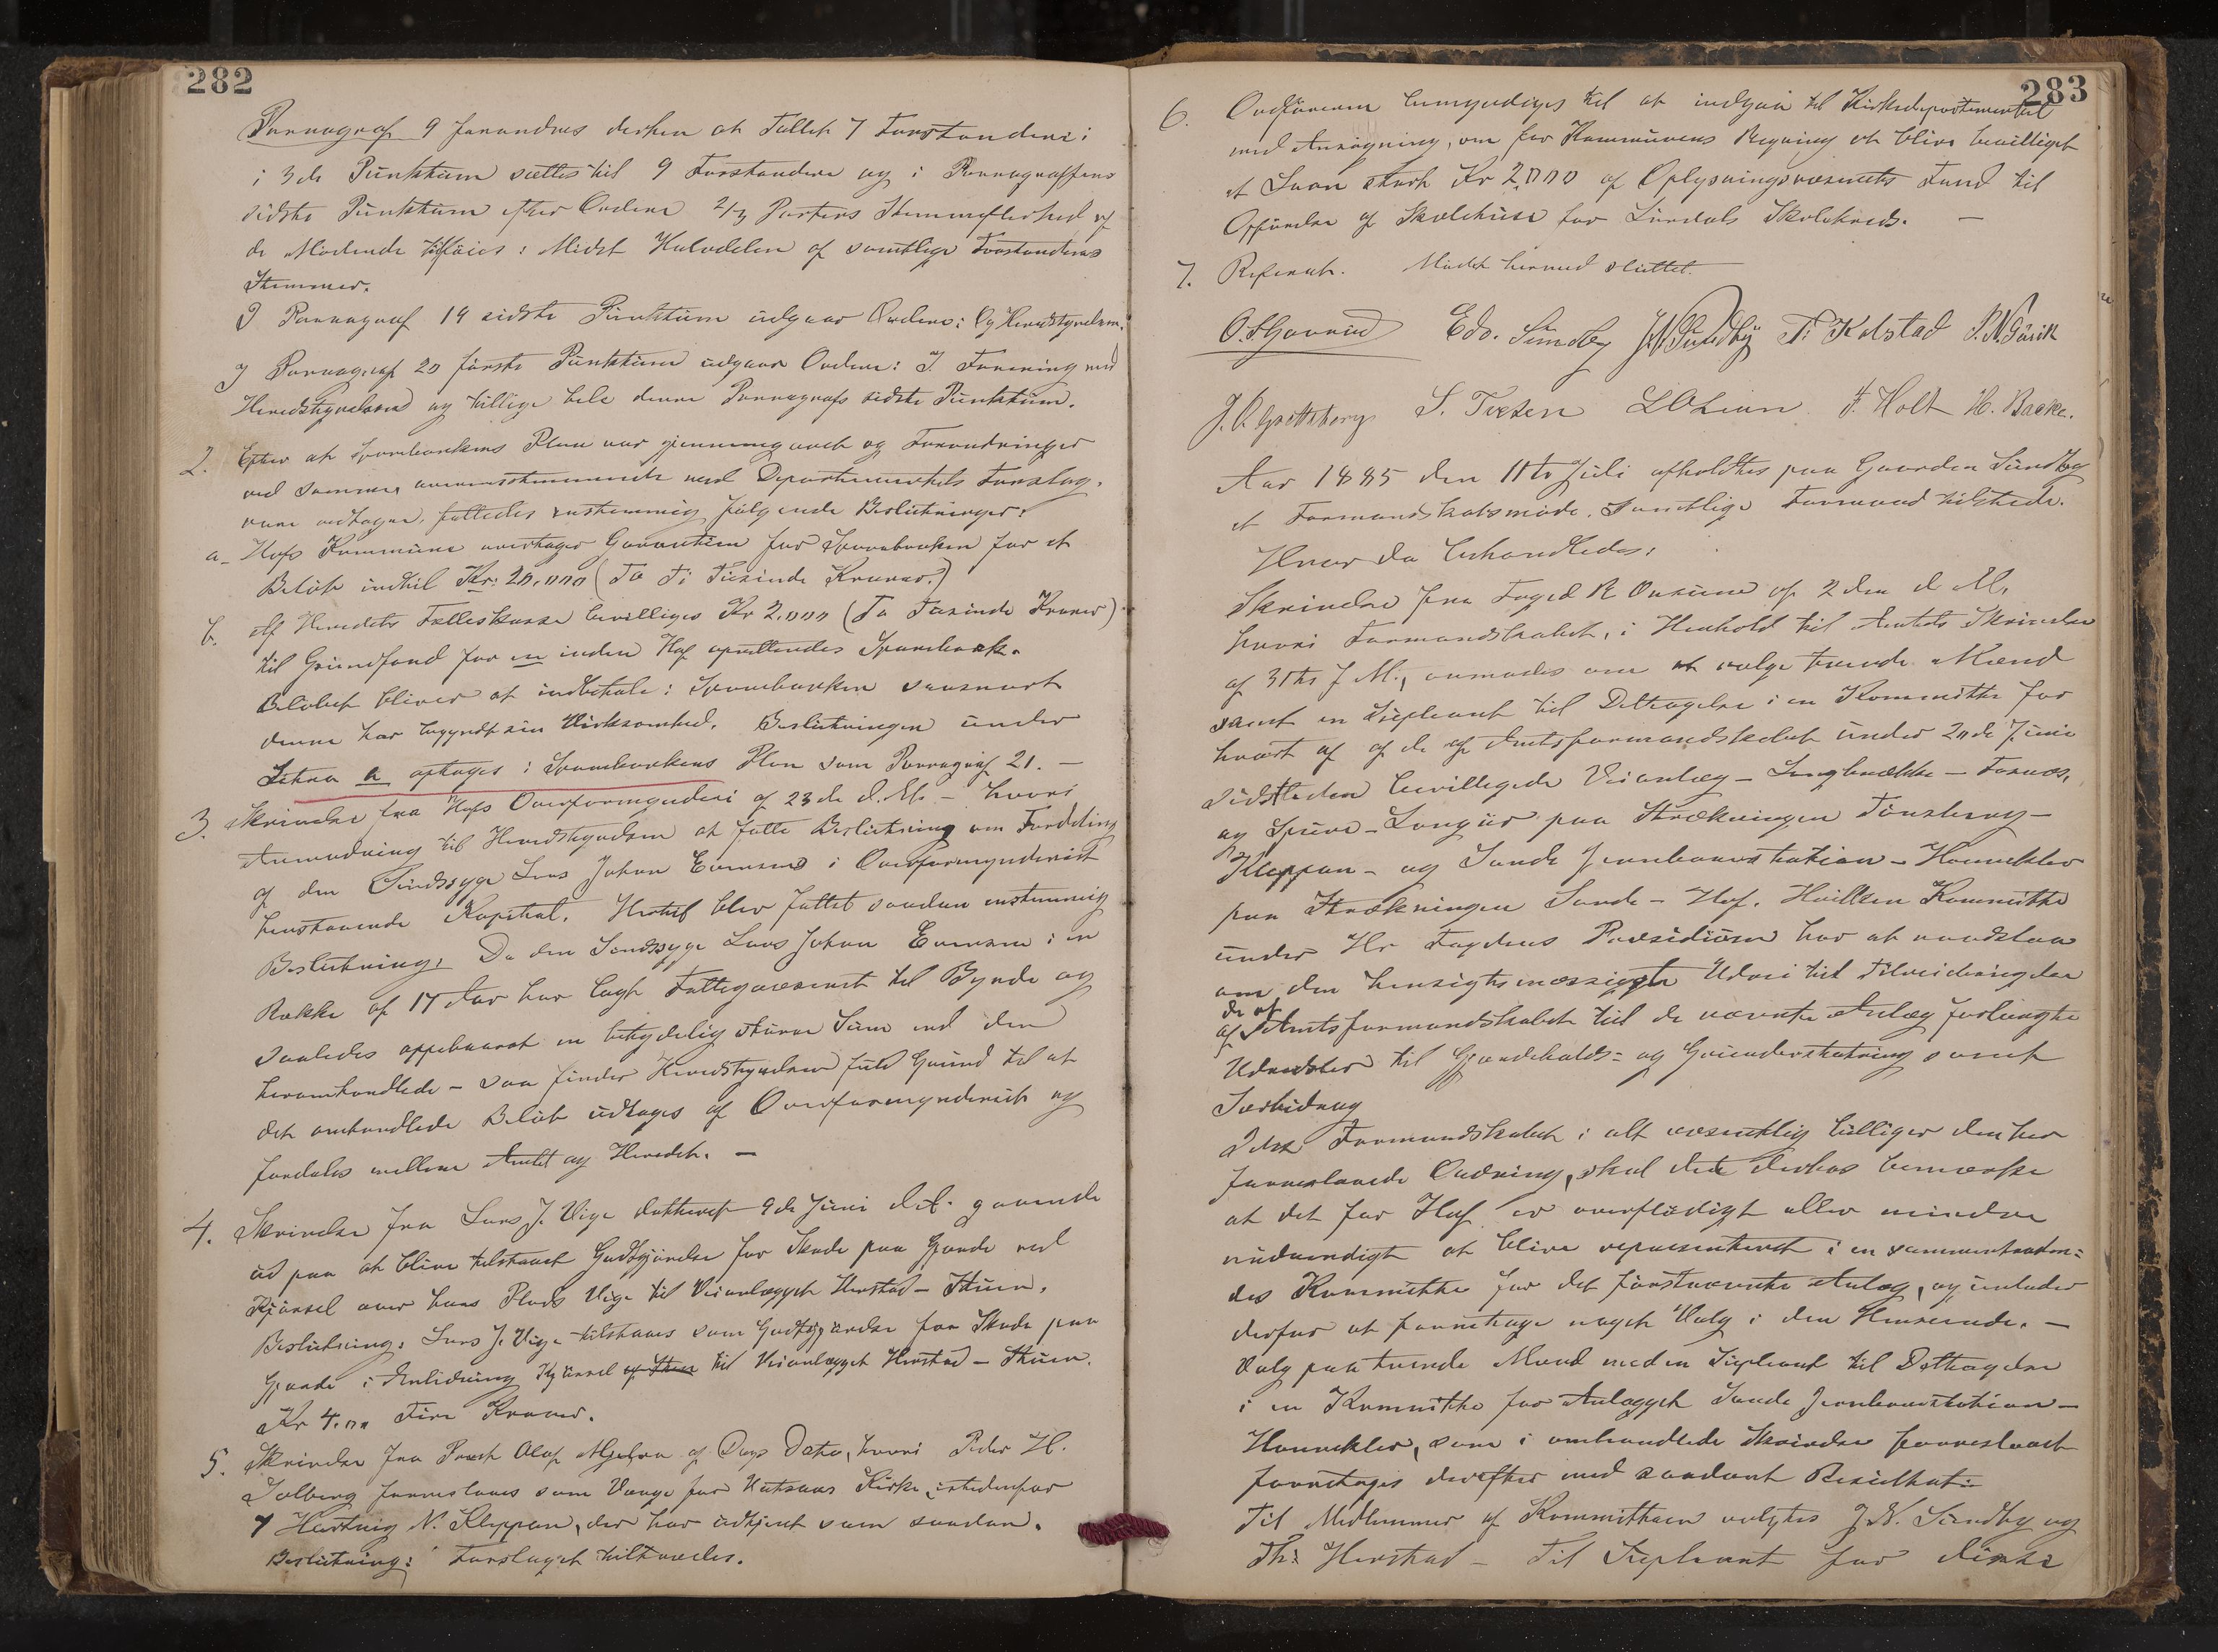 282
Paragraf 9 forandres derhen at Tallet 7 Forstandere i
i 3de Punktum sættes til 9 Forstandere og i Paragraffens
sidste Punktum efter Ordene 2/3 Parters Stemmeflerhed af
de Mødende tilføies: Midst Halvdelen af samtlige Forstanderes
Stemmer.
I Paragraf 19 sidste Punktum udgaar Ordene: Og Herredstyrelsen.
I Paragraf 20 første Punktum udgaar Ordene: I Forening med
Herredstyrelsen og tillige hele denne Paragrafs sidste Punktum.
2. Efter at Sparebankens Plan var gjennemgaaet og Forandringer
ved samme, overensstemmende med Departementets Forslag,
vare vedtagne, fattedes enstemmig følgende Beslutninger:
a- Hofs Kommune overtager Garantien for Sparebanken for et
Beløb indtil Kr: 20,000 (To Ti Tusinde Kroner.)
b. Af Herredets Fælleskasse bevilliges Kr 2,000 (To Tusinde Kroner)
til Grundfond for en inden Hof oprettendes Sparebank.
Beløbet bliver at indbetale i Sparebanken saasnart
denne har begyndt sin Virksomhed. Beslutningen under
Litra a optages i Sparebankens Plan som Paragraf 21. —
3. Skrivelse fra Hofs Overformynderi af 23de d.M. – hvori
Anmodning til Herredstyrelsen at fatte Beslutning om Fordeling
af den Sindssyge Lars Johan Evensens i Overformynderiet
henstaaende Kapital. Hertil blev fattet saadan enstemmig
Beslutning: Da den Sindssyge Lars Johan Evensen i en
Række af 17 Aar har lagt Fattigvæsenet til Byrde og
saaledes oppebaaret en betydelig større Sum end den
heromhandlede – saa finder Herredstyrelsen fuld Grund til at
det omhandlede Beløb udtages af Overformynderiet og
fordeles mellem Amtet og Herredet. —
4. Skrivelse fra Lars J. Vige dateret 9de Juni d.A. gaaende
ud paa at blive tilstaaet Godtgjørelse for Skade paa Gjærde ved
Kjørsel over hans Plads Vige til Veianlægget Herstad – Thuen.
Beslutning: Lars J. Vige tilstaaes som Godtgjørelse for Skade paa
Gjærde i Anledning Kjørsel til Veianlægget Herstad – Thuen.
Kr 4.00 Fire Kroner.
5. Skrivelse fra Prest Olaf af Dags Dato, hvori Peder H.
Solberg foreslaaes som Værge for Vatsaas Kirke, istedenfor
Hartvig N. Kleppan, der har udtjent som saadan.
Beslutning: Forslaget tiltrædes.
283
6. Ordføreren bemyndiges til at indgaa til Kirkedepartementet
med Ansøgning, om for Kommunens Regning at blive bevilliget
et Laan stort Kr 2,000 af Oplysningsvæsenets Fond til
Opførelse af Skolehuse for Sundals Skolekreds. —
7. Referat. Mødet hermed sluttet.
O. S. Edv. Sundby J N Sundby T. Kolstad
S. Tresen F. Holt H. Backe.
Aar 1885 den 11te Juli afholdtes paa Gaarden Sundby
et Formandskabsmøde. Samtlige Formænd tilstede.
Hvor da behandledes:
Skrivelse fra Foged R Onsum af 2den d.M.
hvori Formandskabet, i Henhold til Amtets Skrivelse
af 3die f.M., anmodes om at vælge tvende Mænd
samt en Supleant til Deltagelse i en Kommitte for
hvert af de af Amtsformandskabet under 20de Juni
sidstleden bevilligede Veianlæg – – Fosnæs,
og – paa Strækningen Tønsberg –
Kleppan – og Sande Jernbanestation – Hanekleven
paa Strækningen Sande – Hof. Hvilken Kommitte
under Hr. Fogdens Præsidium har at raadslaa
om den hensigtsmæssigste Udvei til Tilveiebringelse
de af
af Amtsformandskabet til de nævnte Anlæg forlangte
Udredsler til Gjærdeholds- og Grunderstatning samt
Særbidrag
Idet Formandskabet i alt væsentlig billiger den her
foreslaaede Ordning, skal det derhos bemærke
at det for Hof er overflødigt eller mindre
nødvendigt at blive representeret i en sammentræden-
des Kommitte for det førstnævnte Anlæg, og undlader
derfor at foretage noget Valg i den Henseende. —
Valg paa tvende Mænd med en Supleant til Deltagelse
i en Kommitte for Anlægget Sande Jernbanestation –
Hanekleven, som i omhandlede Skrivelse foreslaaet
foretages derefter med saadant Resultat:
Til Medlemmer af Kommitteen valgtes J.N. Sundby og
Th: Herstad – Til Supleant for disse